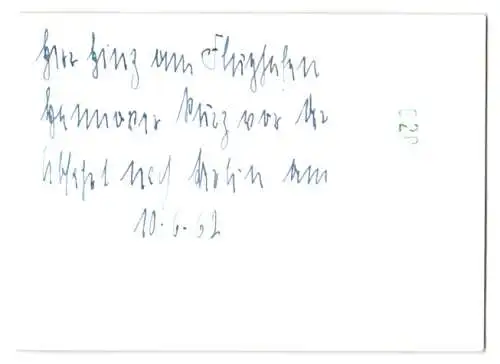 Herr Hinz am Flughafen
Hannover kurz vor der
Abfahrt nach Berlin am
10.6.62